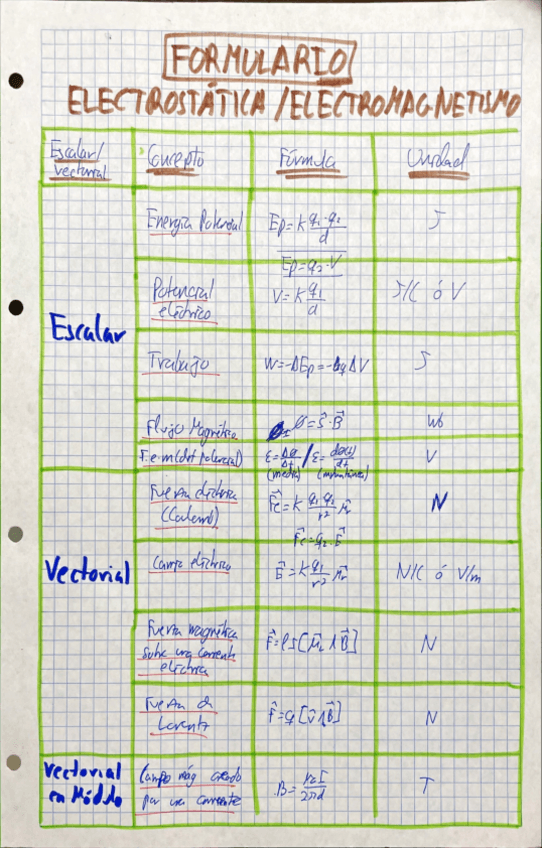 FORMULARIO
ELECTROSTÁTICA / ELECTROMAGNETISMO
Escalar/ vectorial Concepto Fórmula Unidad
Escalar
Energía Potencial Ep = k q₁·q₂/d J
Ep = q₂·V
Potencial eléctrico V = k q₁/d J/C ó V
Trabajo W = -ΔEp = -q ΔV J
Flujo Magnético Ø = S⃗·B⃗ Wb
F.e.m (dif potencial) V
(media) (instantánea)
Vectorial
Fuerza eléctrica (Coulomb) F⃗e = k q₁ q₂/r² μ⃗r N
F⃗e = q₂·E⃗
Campo eléctrico E⃗ = k q₁/r² μ⃗r N/C ó V/m
Fuerza magnética sobre una corriente eléctrica N
Fuerza de Lorentz F⃗ = q [v⃗ ∧ B⃗] N
Vectorial en Módulo
Campo mag creado por una corriente B = μ₀ I/2πd T